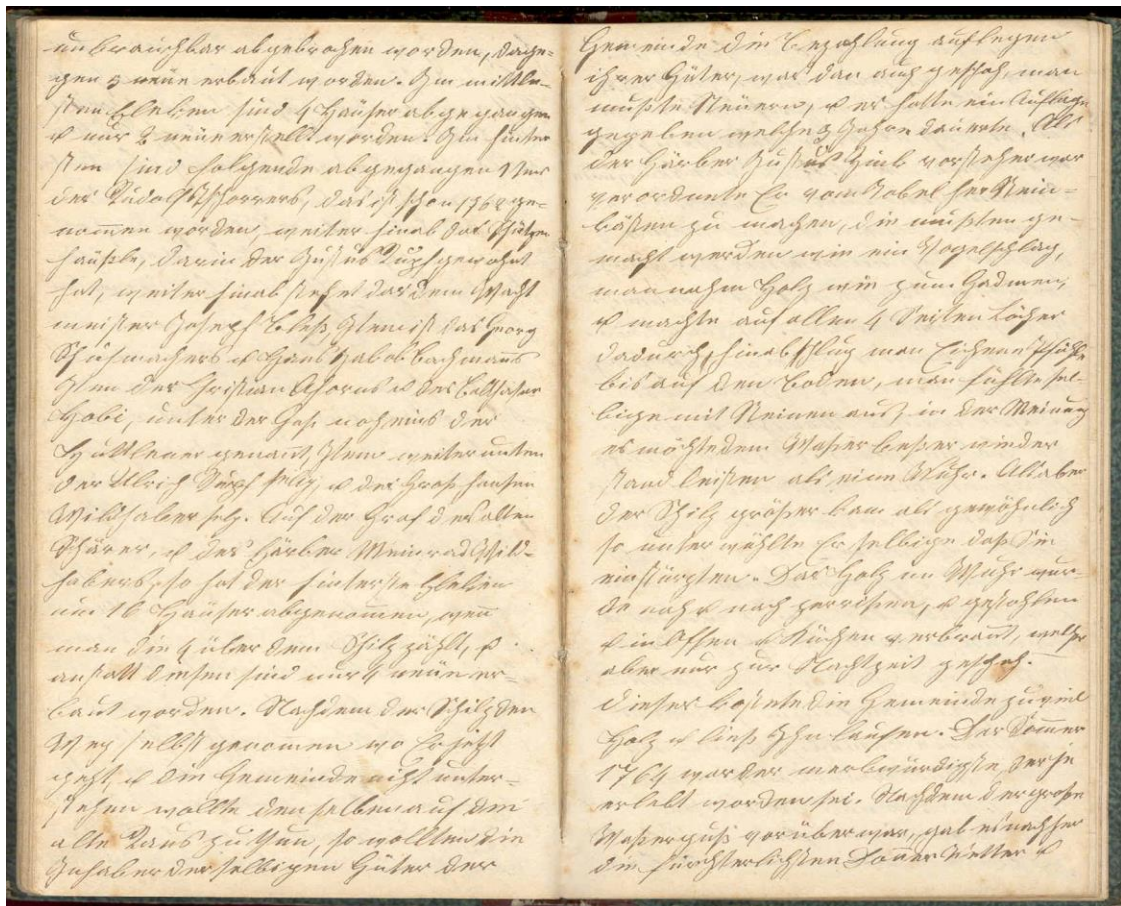 unbrauchbar abgebrochen worden, dage-
gen 3 neue erbaut worden. Im mittle-
sten Eleben sind 4 Häuser abgegangen
& nur 2 neue erstellt worden. Im hinter
sten sind folgende abgegangen
des Rudolf Schorrers, das ist schon 1764 ge-
nommen worden, weiter hinab das Schützen
häusle, darin der Justus Zupf gewohnt
hat, weiter hinab stehet das dem Wacht
meister Joseph Bleß, Item ist das Georg
Schuhmachers & Hans Jakob Bachmanns
Item des Christian Ahorns & des Balthasar
Hobi, unter der Gaß noch eins der
genannt, Item weiter unten
der Ulrich Zupf selig, & des Groß hansen
Wildhaber selg. Auf der Graf des alten
Schärer, & des Färber Meinrad Wild-
habers, so hat der hinterste Eleben
um 16 Häuser abgenommen, wen
man die 4 über dem Schilz zählt, &
anstatt diesen sind nur 4 neue er-
baut worden. Nachdem der Schilz den
Weg selbst genommen wo Er jetzt
geht, & die Gemeinde nicht unter-
stehen wollte denselben auf die
alte Raus zu thun, so wollten die
Inhaber derselbigen Güter der
Gemeinde die Bezahlung auflegen
ihrer Güter, was dan auch geschah, man
mußte Steuern, & es hatte ein Auflage
gegeben welche 3 Jahre dauerte. Als
der Färber Justus Hub vorsteher war
verordnete Er vom Kobel her Stein-
kästen zu machen, die mußten ge-
macht werden wie ein Vogelschlag,
man nahm Holz wie zum Gadmen,
& machte auf allen 4 Seiten Löcher
dadurch, hinab schlug man Eichene Pfähle
bis auf den Boden, man füllte sel-
bige mit Steinen aus, in der Meinung
es möchte dem Waßer beßer wieder
stand leisten als eine Wuhr. Als aber
der Schilz größer kam als gewöhnlich
so unterwühlte Er selbige daß Sie
einstürzten. Das Holz im Wuhr wur-
de nach & nach zerrissen, & gestohlen
& in Öffen & Küchen verbrannt, welches
aber nur zur Nachtzeit geschah.
dieses kostete die Gemeinde zu viel
Holz & ließ Ihn laufen. Der Sommer
1764 war der merkwürdigste, der je
erlebt worden sei. Nachdem der große
Waßerguß vorüber war, gab es nachher
die fürchterlichsten Donner Wetter &